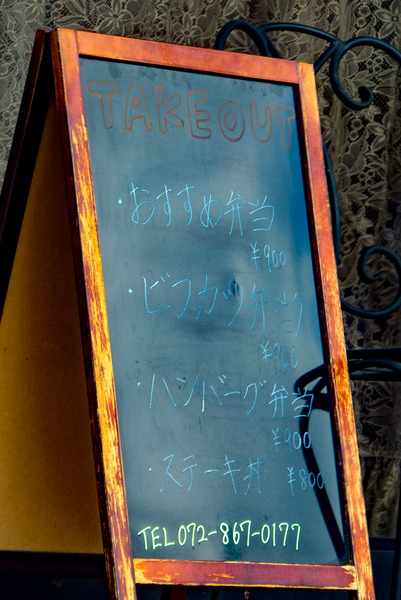 TAKEOUT
・おすすめ弁当
¥900
・ビフカツ弁当
¥900
・ハンバーグ弁当
¥900
・ステーキ丼 ¥800
TEL072-867-0177